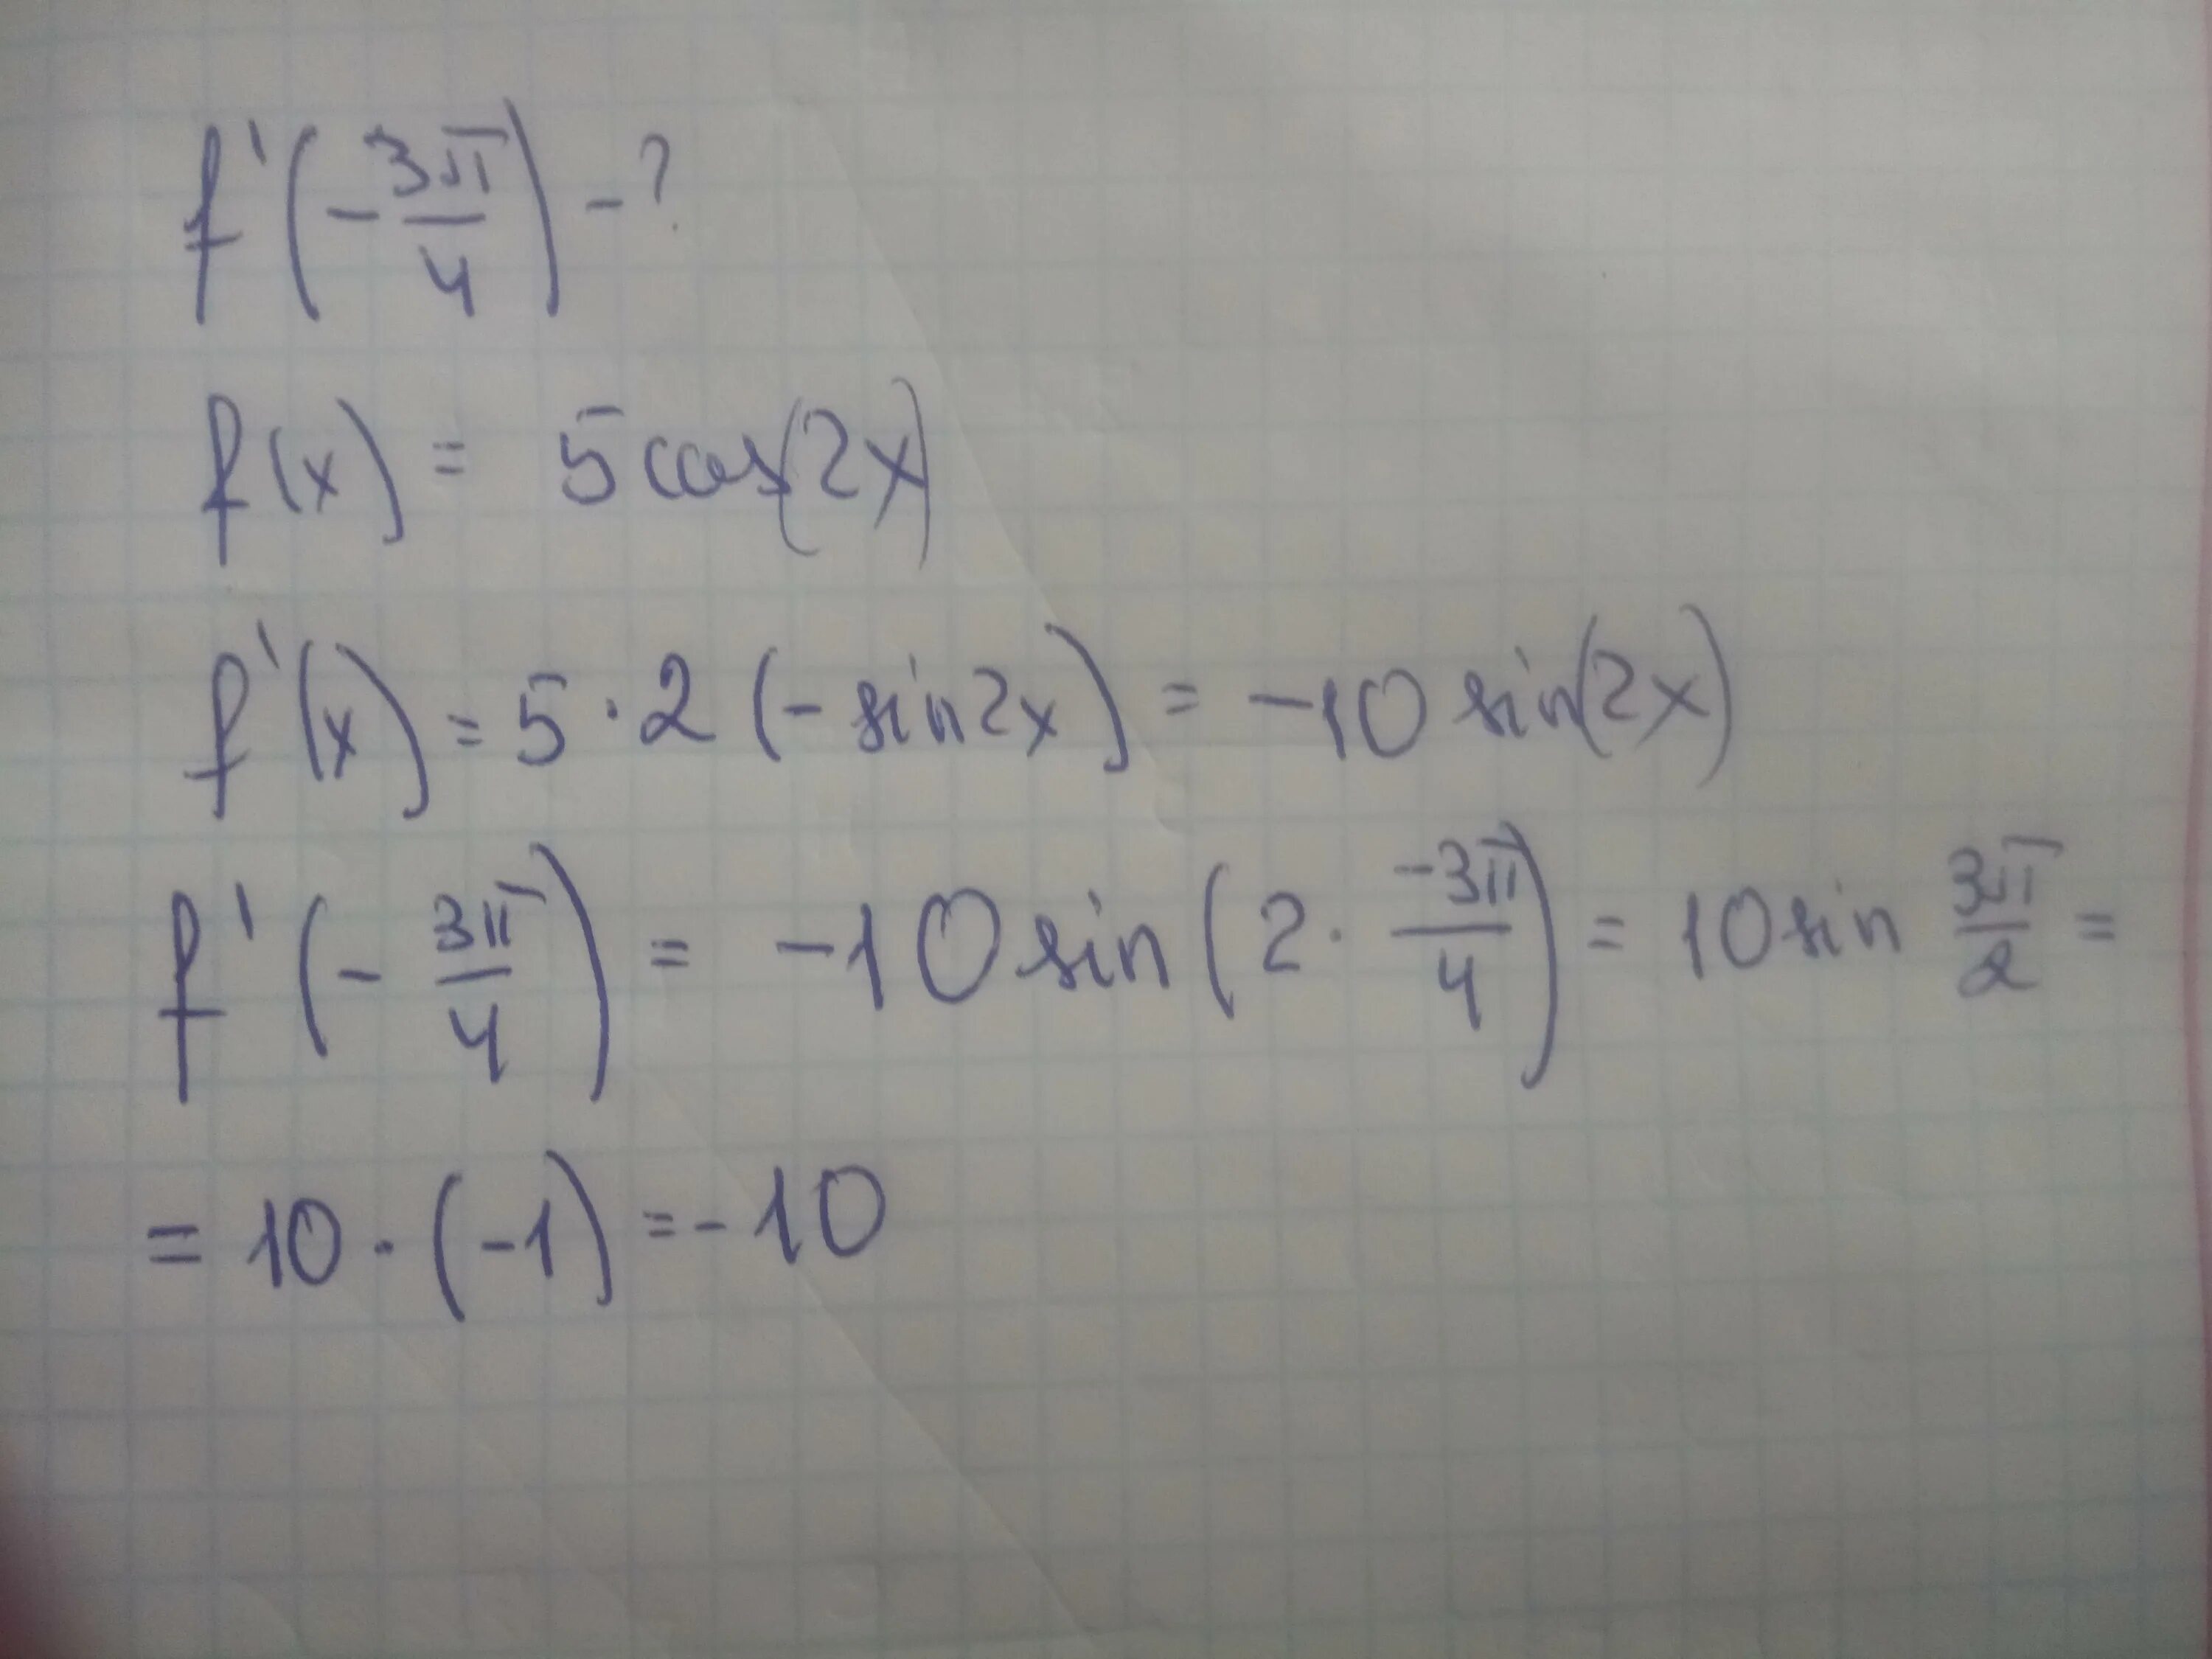 f'(-3π/4) - ?
f(x) = 5cos(2x)
f'(x) = 5 · 2 (- sin2x) = -10 sin(2x)
f'(- 3π/4) = -10 sin (2 · -3π/4) = 10 sin 3π/2 =
= 10 · (-1) = -10